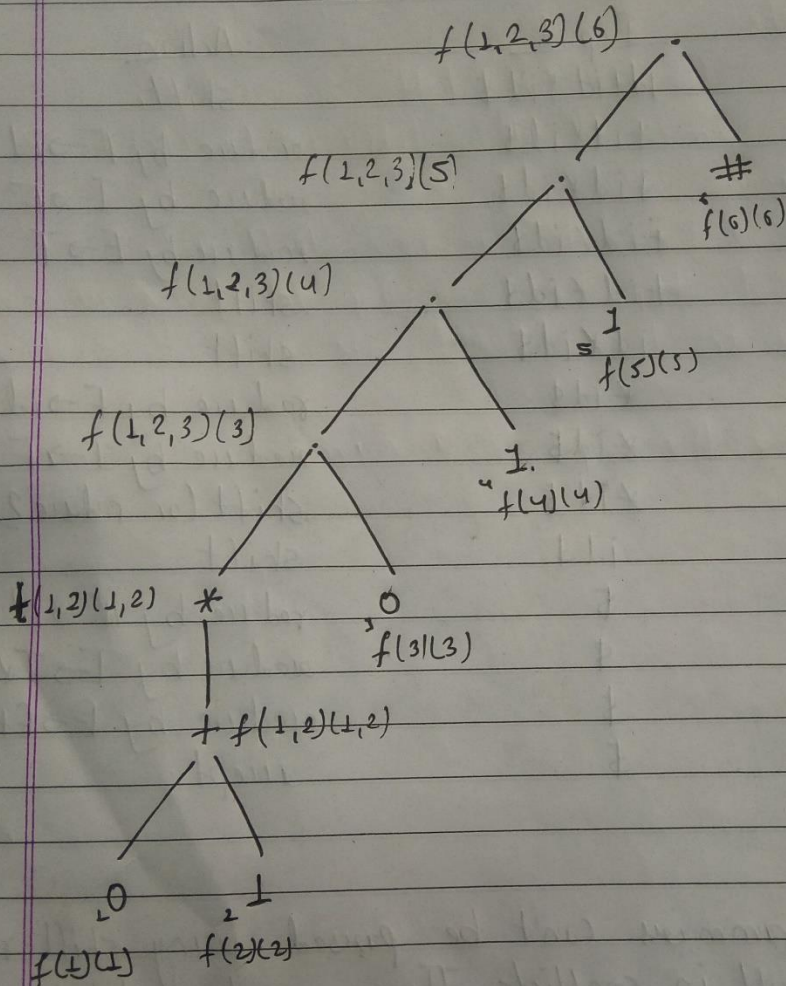 f(1,2,3)(6) .
#
f(1,2,3)(5) .
6 f(6)(6)
f(1,2,3)(4) .
1
5 f(5)(5)
f(1,2,3)(3) .
1.
4 f(4)(4)
f(1,2)(1,2) * 0
3 f(3)(3)
+ f(1,2)(1,2)
1 0 2 1
f(1)(1) f(2)(2)